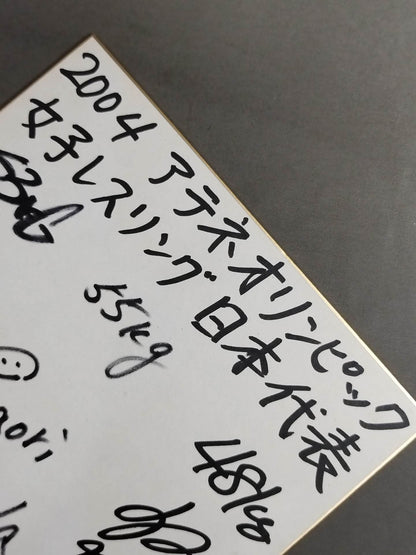 2004 アテネオリンピック
女子レスリング 日本代表
55kg
48kg
ori